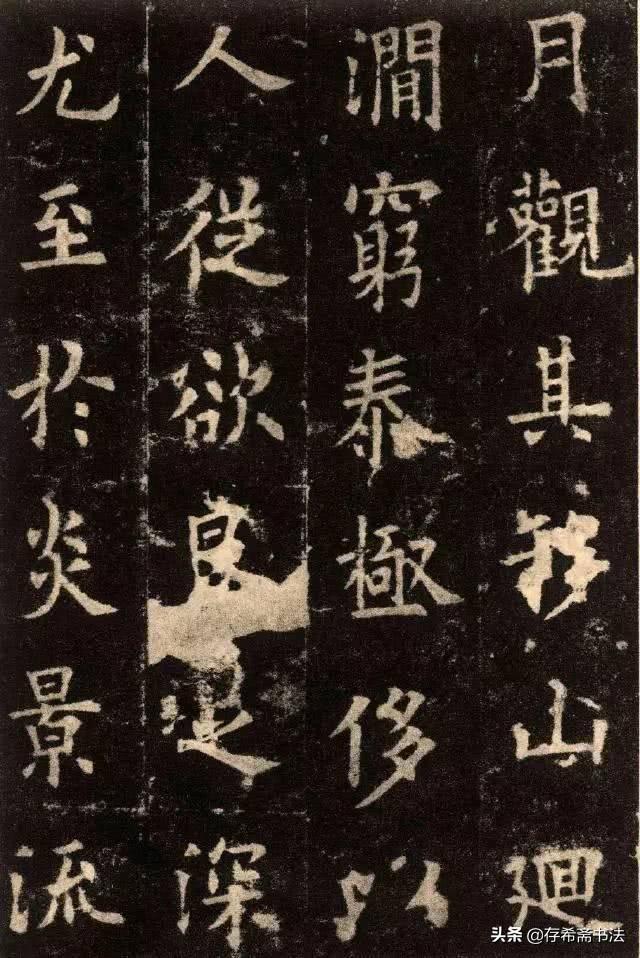 月觀其移山廻
澗窮泰極侈以
人從欲良足深
尤至於炎景流
头条 @存希斋书法